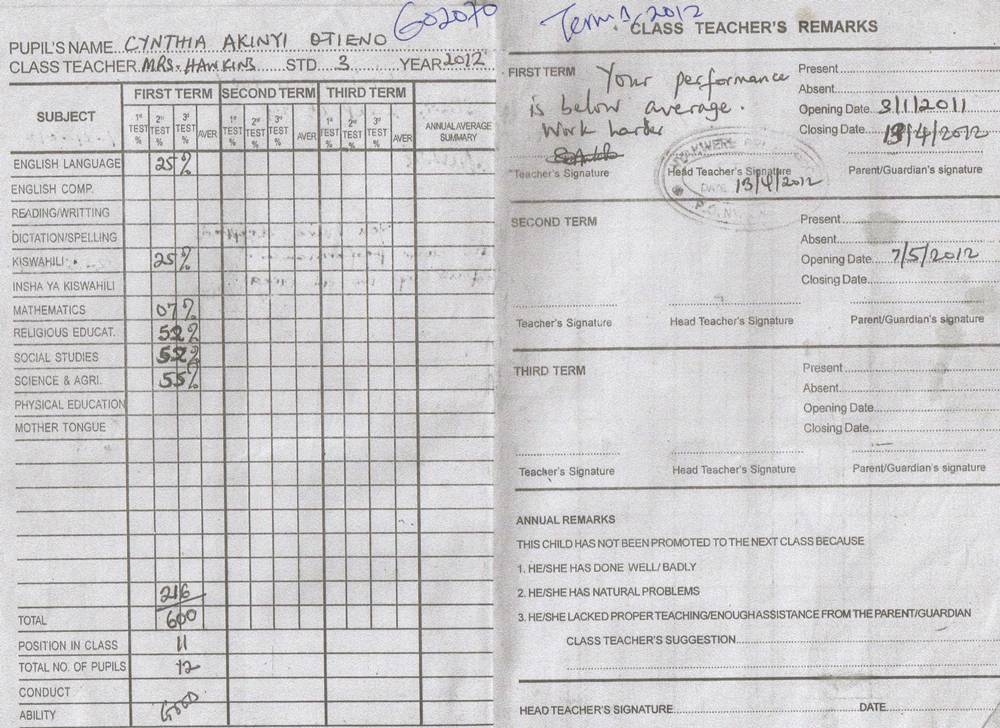 602070
PUPIL'S NAME CYNTHIA AKINYI OTIENO
CLASS TEACHER MRS. HAWKINS STD 3 YEAR 2012
SUBJECT FIRST TERM SECOND TERM THIRD TERM ANNUAL AVERAGE SUMMARY
1st TEST % 2nd TEST % 3rd TEST % AVER 1st TEST % 2nd TEST % 3rd TEST % AVER 1st TEST % 2nd TEST % 3rd TEST % AVER
ENGLISH LANGUAGE 25%
ENGLISH COMP.
READING/WRITTING
DICTATION/SPELLING
KISWAHILI 25%
INSHA YA KISWAHILI
MATHEMATICS 07%
RELIGIOUS EDUCAT. 52%
SOCIAL STUDIES 52%
SCIENCE & AGRI. 55%
PHYSICAL EDUCATION
MOTHER TONGUE
216
TOTAL 600
POSITION IN CLASS 11
TOTAL NO. OF PUPILS 12
CONDUCT
ABILITY GOOD
Term 1, 2012
CLASS TEACHER'S REMARKS
FIRST TERM Your performance
is below average.
Work harder
Present
Absent
Opening Date 3/1/2011
Closing Date 13/4/2012
Teacher's Signature Head Teacher's Signature Parent/Guardian's signature
DATE 13/4/2012
SECOND TERM
Present
Absent
Opening Date 7/5/2012
Closing Date
Teacher's Signature Head Teacher's Signature Parent/Guardian's signature
THIRD TERM
Present
Absent
Opening Date
Closing Date
Teacher's Signature Head Teacher's Signature Parent/Guardian's signature
ANNUAL REMARKS
THIS CHILD HAS NOT BEEN PROMOTED TO THE NEXT CLASS BECAUSE
1. HE/SHE HAS DONE WELL/ BADLY
2. HE/SHE HAS NATURAL PROBLEMS
3. HE/SHE LACKED PROPER TEACHING/ENOUGHASSISTANCE FROM THE PARENT/GUARDIAN
CLASS TEACHER'S SUGGESTION
HEAD TEACHER'S SIGNATURE DATE